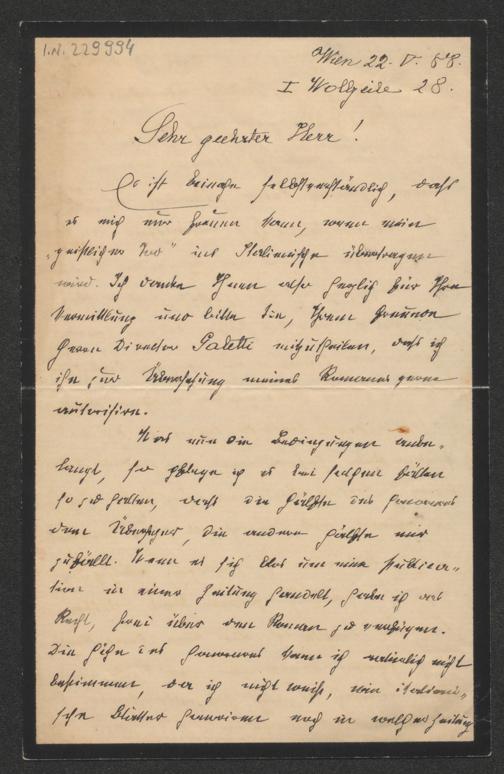 I.N. 229994
Wien 22. V. 88.
I Wollzeile 28.
Sehr geehrter Herr!
Es ist beinahe selbstverständlich, daß
es mich nur freuen kann, wenn mein
„geistlicher Tod" ins Italienische übertragen
wird. Ich danke Ihnen also herzlich für Ihre
Vermittlung und bitte Sie, Ihrem Freunde
Herrn Director Galetti mitzutheilen, daß ich
ihn zur Übersetzung meines Romanes gerne
autorisire.
Was nun die Bedingungen anbe-
langt, so pflege ich es bei solchen Fällen
so zu halten, daß die Hälfte des Honorares
dem Übersetzer, die andere Hälfte mir
zufällt. Wenn es sich blos um eine Publica-
tion in einer Zeitung handelt, habe ich das
Recht, frei über den Roman zu verfügen.
Die Höhe des Honorares kann ich natürlich nicht
bestimmen, da ich nicht weiß, wie italieni-
sche Blätter honoriren und in welcher Zeitung